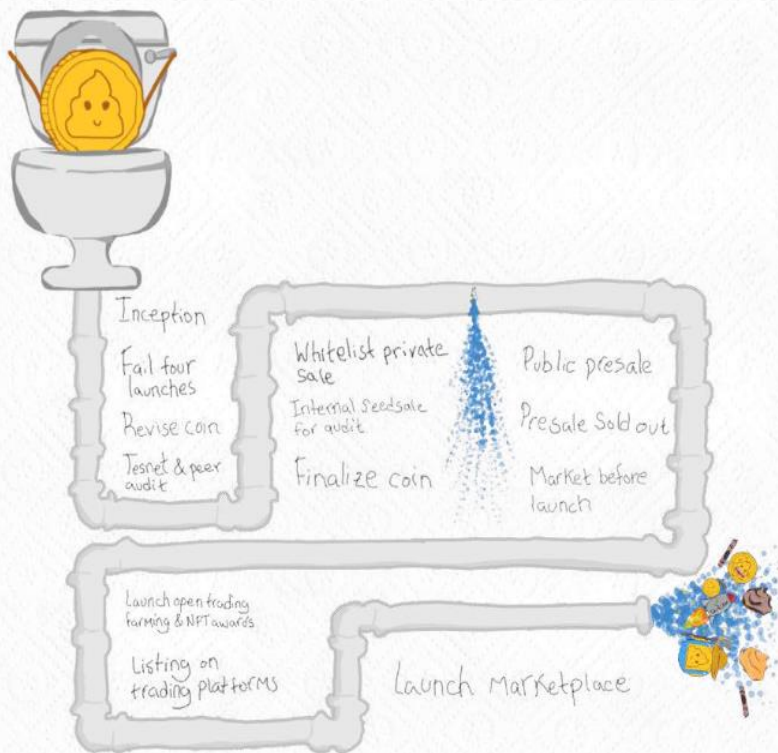 Inception
Fail four
launches
Revise coin
Tesnet & peer
audit
Whitelist private
sale
Internal Seedsale
for audit
Finalize coin
Public presale
Presale Sold out
Market before
launch
Launch open trading
farming & NFT awards
Listing on
trading platforms
Launch Marketplace